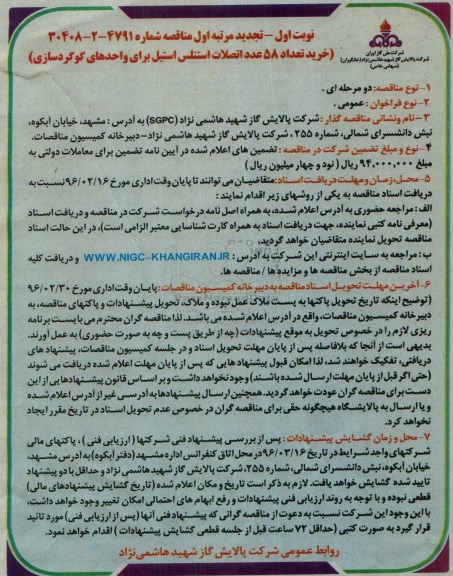 شرکت ملی گاز ایران
شرکت پالایش گاز شهید هاشمی نژاد (خانگیران)
(سهامی خاص)
نوبت اول - تجدید مرتبه اول مناقصه شماره ۴۷۹۱-۲-۳۰۴۰۸
(خرید تعداد ۵۸ عدد اتصالات استنلس استیل برای واحدهای گوگردسازی)
۱- نوع مناقصه: دو مرحله ای.
۲- نوع فراخوان: عمومی.
۳- نام ونشانی مناقصه گذار: شرکت پالایش گاز شهید هاشمی نژاد (SGPC) به آدرس: مشهد، خیابان آبکوه،
نبش دانشسرای شمالی، شماره ۲۵۵، شرکت پالایش گاز شهید هاشمی نژاد-دبیرخانه کمیسیون مناقصات.
۴- نوع و مبلغ تضمین شرکت در مناقصه: تضمین های اعلام شده در آیین نامه تضمین برای معاملات دولتی به
مبلغ ۹۴,۰۰۰,۰۰۰ ریال (نود و چهار میلیون ریال)
۵- محل، زمان و مهلت دریافت اسناد: متقاضیان می توانند تا پایان وقت اداری مورخ ۹۶/۰۲/۱۶ نسبت به
دریافت اسناد مناقصه به یکی از روشهای زیر اقدام نمایند:
الف: مراجعه حضوری به آدرس اعلام شده، به همراه اصل نامه درخواست شرکت در مناقصه و دریافت اسناد
(معرفی نامه کتبی نماینده، جهت دریافت اسناد به همراه کارت شناسایی معتبر الزامی است)، در این حالت اسناد
مناقصه تحویل نماینده متقاضیان خواهد گردید.
ب: مراجعه به سایت اینترنتی این شرکت به آدرس: WWW.NIGC-KHANGIRAN.IR و دریافت کلیه
اسناد مناقصه از بخش مناقصه ها و مزایده ها / مناقصه ها.
۶- آخرین مهلت تحویل اسناد مناقصه به دبیرخانه کمیسیون مناقصات: پایان وقت اداری مورخ ۹۶/۰۲/۳۰
(توضیح اینکه تاریخ تحویل پاکتها به پست ملاک عمل نبوده و ملاک، تحویل پیشنهادات و پاکتهای مناقصه، به
دبیرخانه کمیسیون مناقصات، واقع در آدرس اعلام شده می باشد. لذا مناقصه گران محترم می بایست برنامه
ریزی لازم را در خصوص تحویل به موقع پیشنهادات (چه از طریق پست و چه به صورت حضوری) به عمل آورند.
بدیهی است از آنجا که بلافاصله پس از پایان مهلت تحویل اسناد و در جلسه کمیسیون مناقصات، پیشنهاد های
دریافتی، تفکیک خواهند شد، لذا امکان قبول پیشنهاد هایی که پس از پایان مهلت اعلام شده دریافت می شوند
(حتی اگر قبل از پایان مهلت ارسال شده باشند) وجود نخواهد داشت و بر اساس قانون پیشنهادهایی از این
دست برای مناقصه گران عودت خواهد گردید. همچنین ارسال پیشنهادها به آدرسی غیر از آدرس اعلام شده
و یا ارسال به پالایشگاه هیچگونه حقی برای مناقصه گران در خصوص عدم تحویل اسناد در تاریخ مقرر ایجاد
نخواهد کرد.
۷- محل و زمان گشایش پیشنهادات: پس از بررسی پیشنهاد فنی شرکتها (ارزیابی فنی)، پاکتهای مالی
شرکتهای واجد شرایط در تاریخ ۹۶/۰۳/۱۶ در محل اتاق کنفرانس اداره مشهد (دفتر آبکوه) به آدرس مشهد،
خیابان آبکوه، نبش دانشسرای شمالی، شماره ۲۵۵، شرکت پالایش گاز شهید هاشمی نژاد و حداقل با دو پیشنهاد
تایید شده گشایش خواهد یافت. لازم به ذکر است تاریخ و مکان اعلام شده (تاریخ گشایش پیشنهادهای مالی)
قطعی نبوده و با توجه به روند ارزیابی فنی پیشنهادات و رفع ابهام های احتمالی امکان تغییر وجود خواهد داشت،
با این وجود این شرکت نسبت به دعوت از مناقصه گرانی که پیشنهاد فنی آنها (پس از ارزیابی فنی) مورد تائید
قرار گیرد به صورت کتبی (حداقل ۷۲ ساعت قبل از جلسه قطعی گشایش پیشنهادات) اقدام خواهد نمود.
روابط عمومی شرکت پالایش گاز شهید هاشمی نژاد